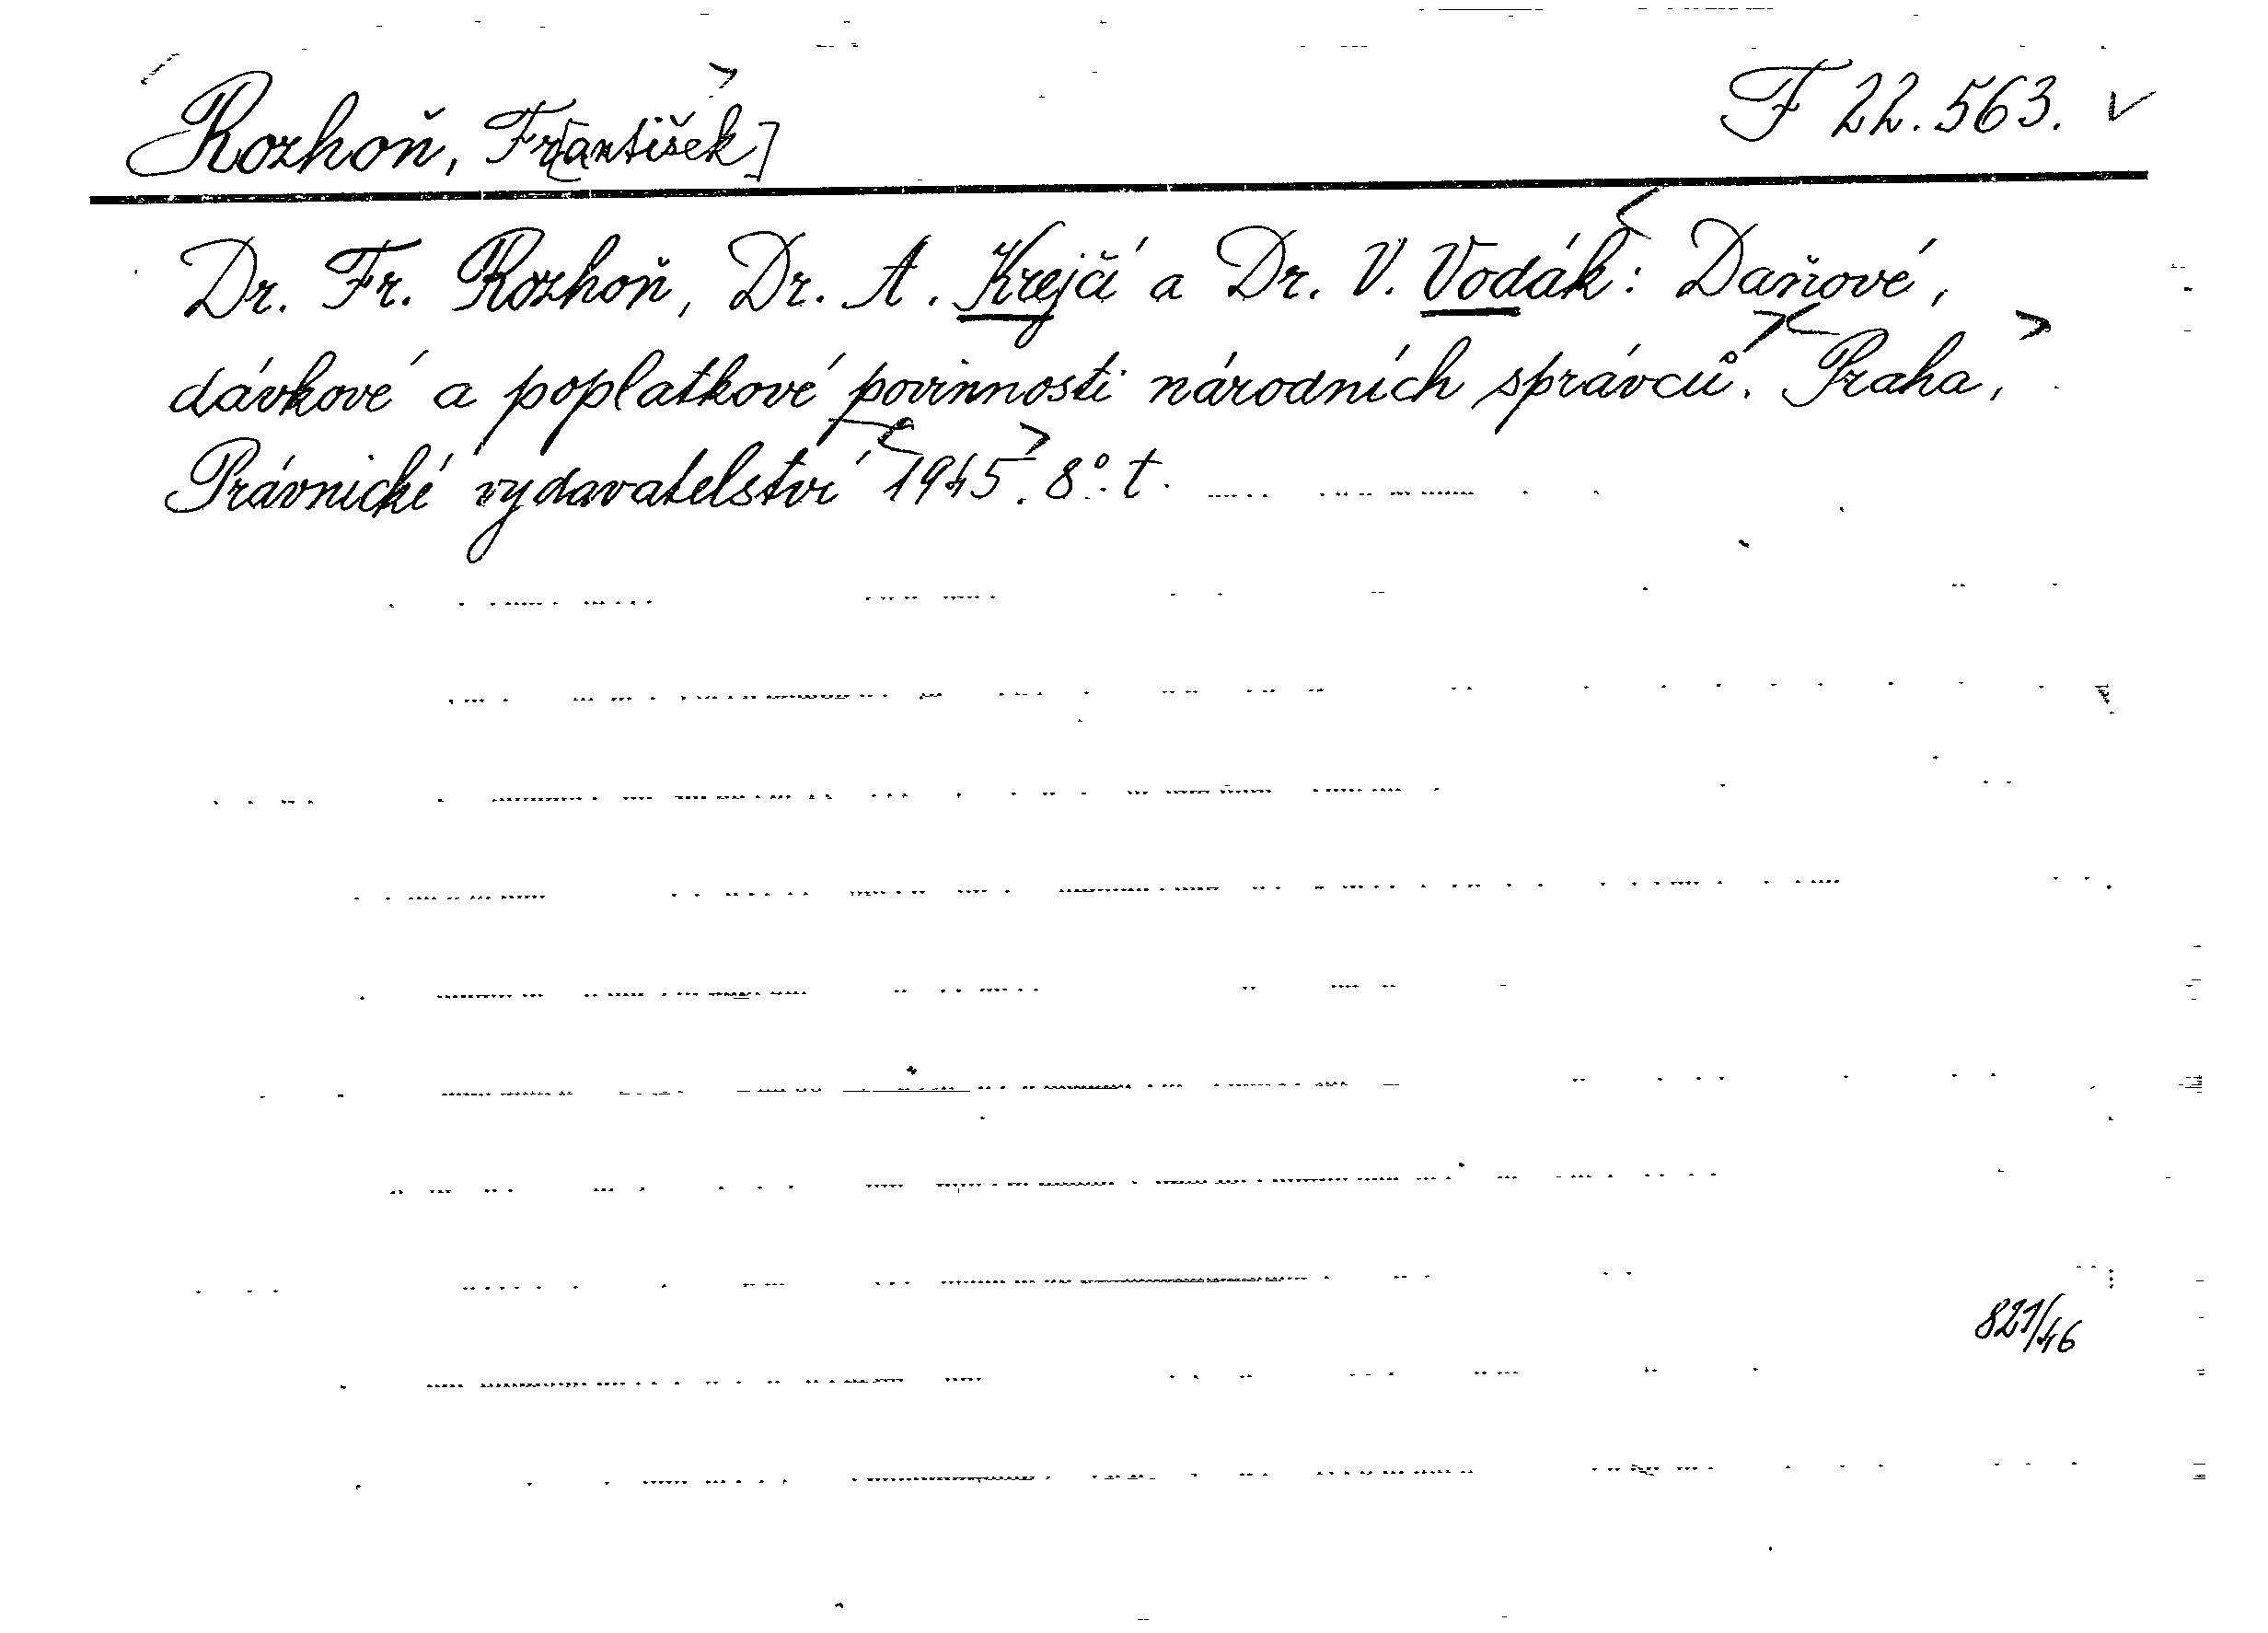 Rozhoň, Fr[antišek] F 22.563.
Dr. Fr. Rozhoň, Dr. A. Krejčí a Dr. V. Vodák: Daňové,
dávkové a poplatkové povinnosti národních správců. Praha,
Právnické vydavatelství 1945. 8°. t.
821/46